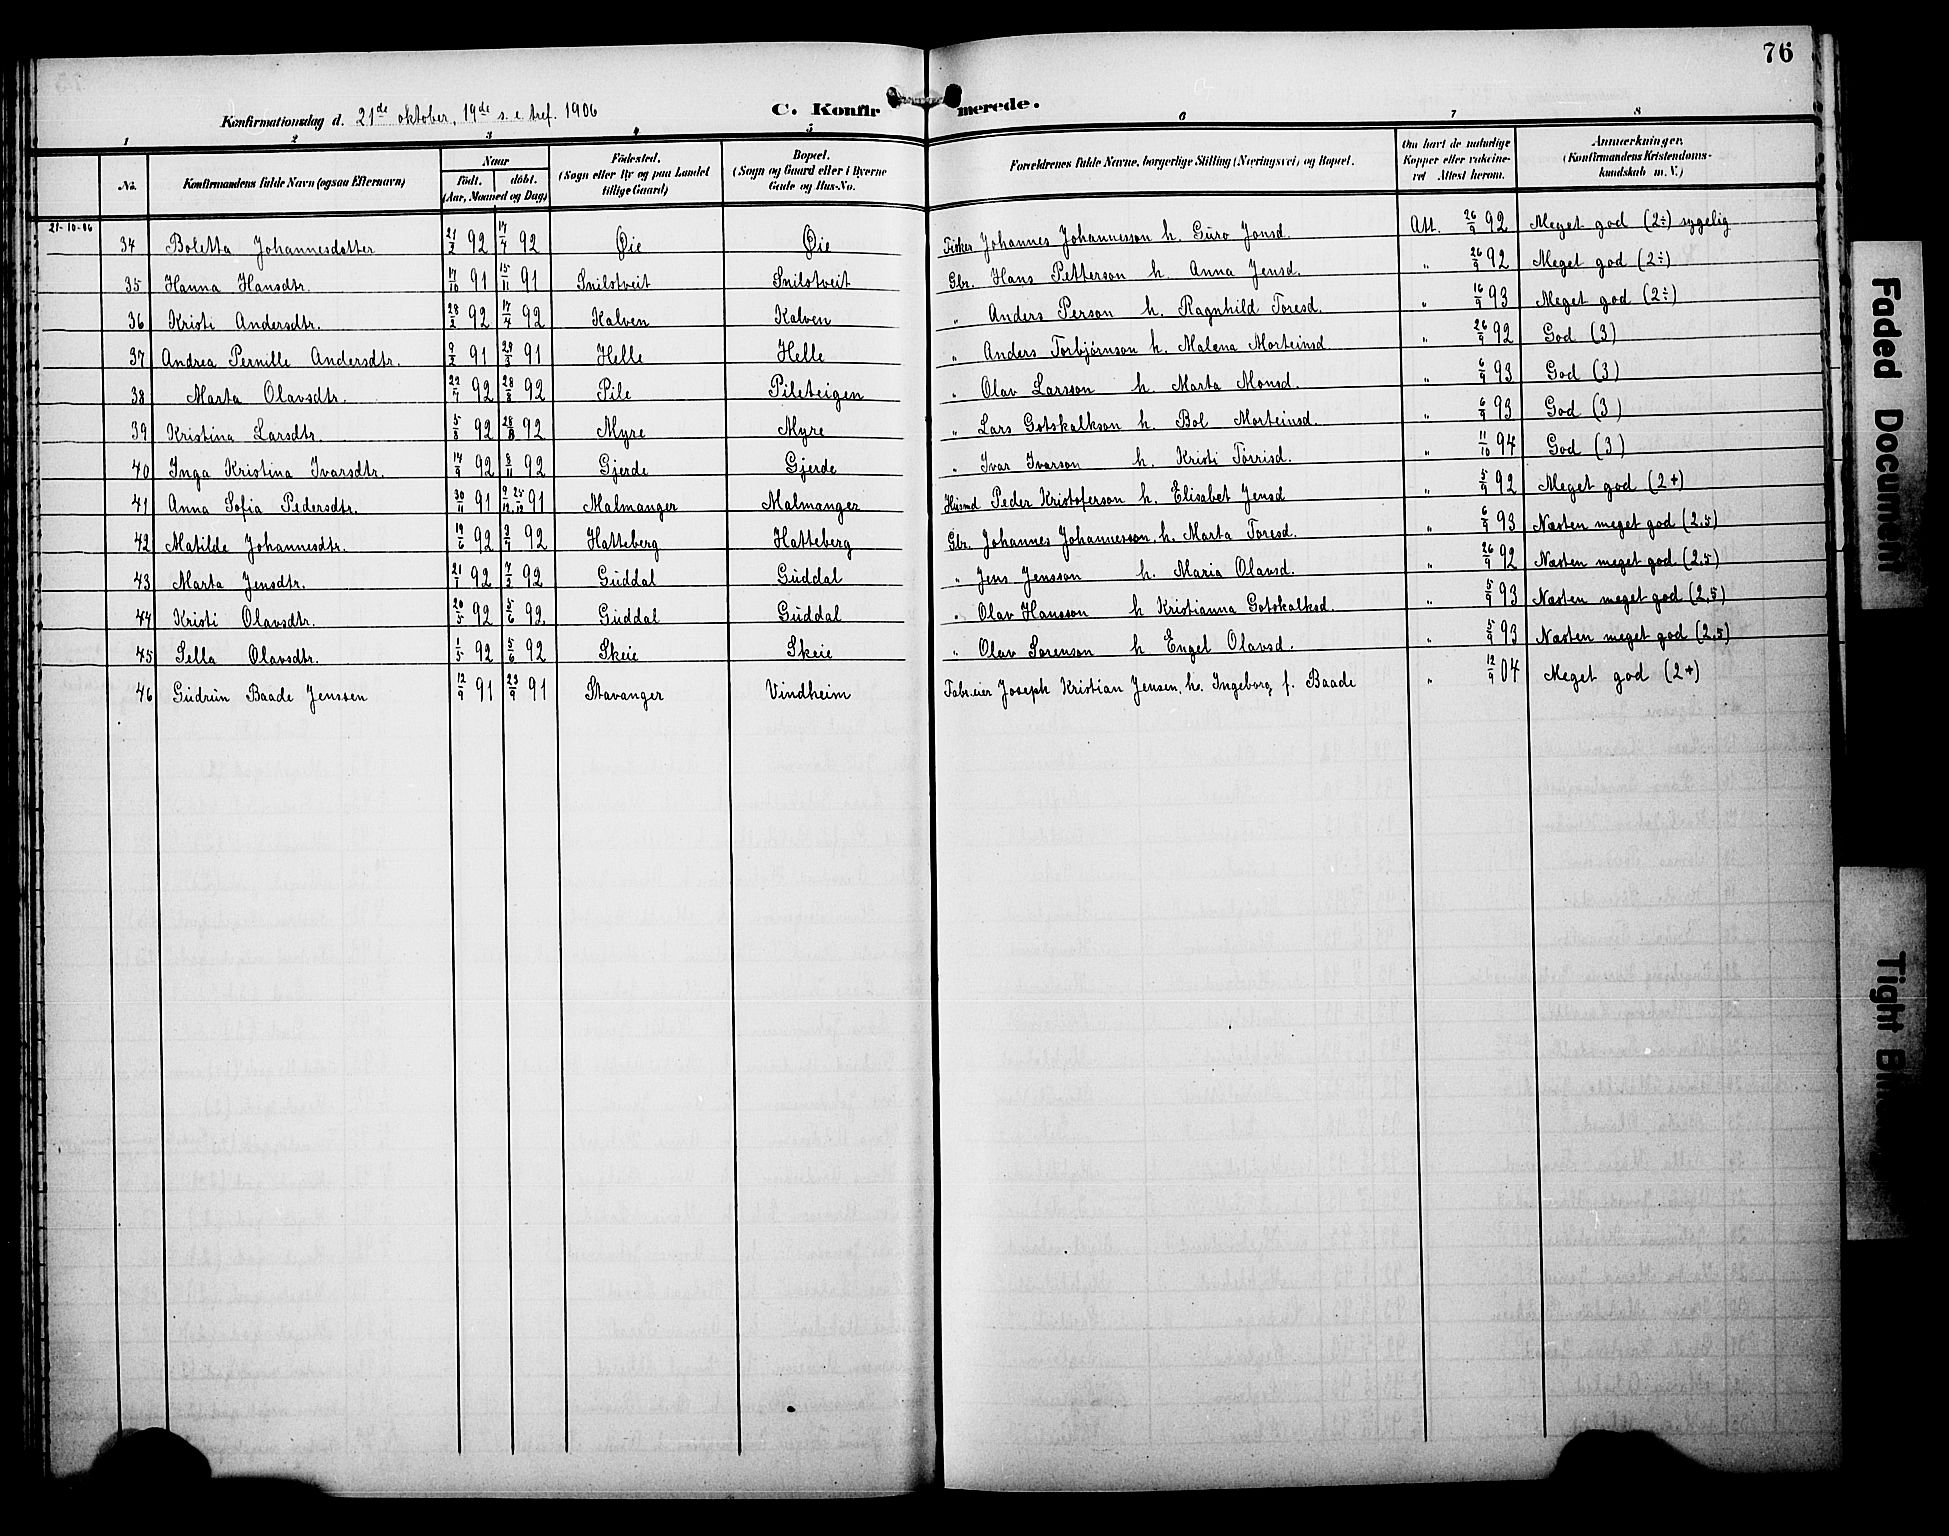 76
Konfirmationsdag d. 21de oktober, 19de s. e. tref. 1906 C. Konfirmerede.
1 2 3 4 5 6 7 8
No. Konfirmandens fulde Navn (ogsaa Efternavn) Naar født. døbt. (Aar, Maaned og Dag) Fødested. (Sogn eller By og paa Landet tillige Gaard) Bopæl. (Sogn og Gaard eller i Byerne Gade og Hus-No. Forældrenes fulde Navne, borgerlige Stilling (Næringsvei) og Bopæl. Om havt de naturlige Kopper eller vakcineret Attest herom. Anmærkninger. (Konfirmandens Kristendomskundskab m. V.)
21-10-06
34 Boletta Johannesdatter 92 17/4 92 Øie Øie Fisker Johannes Johannesson h. Guro Jonsd. Att. 26/9 92 Meget god (2÷) sygelig
35 Hanna Hansdtr. 17/10 91 15/11 91 Snilstveit Snilstveit Gbr. Hans Petterson h. Anna Jensd. " 26/9 92 Meget god (2÷)
36 Kristi Andersdtr. 28/2 92 17/4 92 Kalven Kalven " Anders Person h. Ragnhild Toresd. " 16/9 93 Meget god (2÷)
37 Andrea Pernille Andersdtr. 91 29/3 91 Helle Helle " Anders Torbjørnson h. Malena Morteinsd. " 26/9 92 God (3)
38 Marta Olavsdtr. 22/7 92 28/8 92 Pile Pileteigen " Olav Larsson h. Marta Monsd. " 6/9 93 God (3)
39 Kristina Larsdtr. 5/8 92 28/8 92 Myre Myre " Lars Gotskalkson h. Bol Morteinsd. " 6/9 93 God (3)
40 Inga Kristina Ivarsdtr. 92 8/11 92 Gjerde Gjerde " Ivar Ivarson h. Kristi Torrisd. " 11/10 94 God (3)
41 Anna Sofia Pedersdtr. 30/11 91 9/12 25/12 91 Malmanger Malmanger Husmd Peder Kristoferson h. Elisabet Jensd " 5/9 92 Meget god (2+)
42 Matilde Johannesdtr. 19/6 92 92 Hatteberg Hatteberg Gbr. Johannes Johannesson h. Marta Toresd. " 6/9 93 Næsten meget god (2.5)
43 Marta Jensdtr. 21/1 92 7/2 92 Guddal Guddal " Jens Jensson h. Maria Olavsd. " 26/9 92 Næsten meget god (2.5)
44 Kristi Olavsdtr. 20/5 92 5/6 92 Guddal Guddal " Olav Hansson h Kristianna Gotskalksd. " 5/9 93 Næsten meget god (2.5)
45 Sella Olavsdtr. 1/5 92 5/6 92 Skeie Skeie " Olav Sørenson h Engel Olavsd. " 5/9 93 Næsten meget god (2.5)
46 Gudrun Baade Jenssen 12/9 91 23/9 91 Stavanger Vindheim Fabr.eier Joseph Kristian Jensen, h. Ingeborg, f. Baade " 12/9 04 Meget god (2+)
Faded Document
Tight